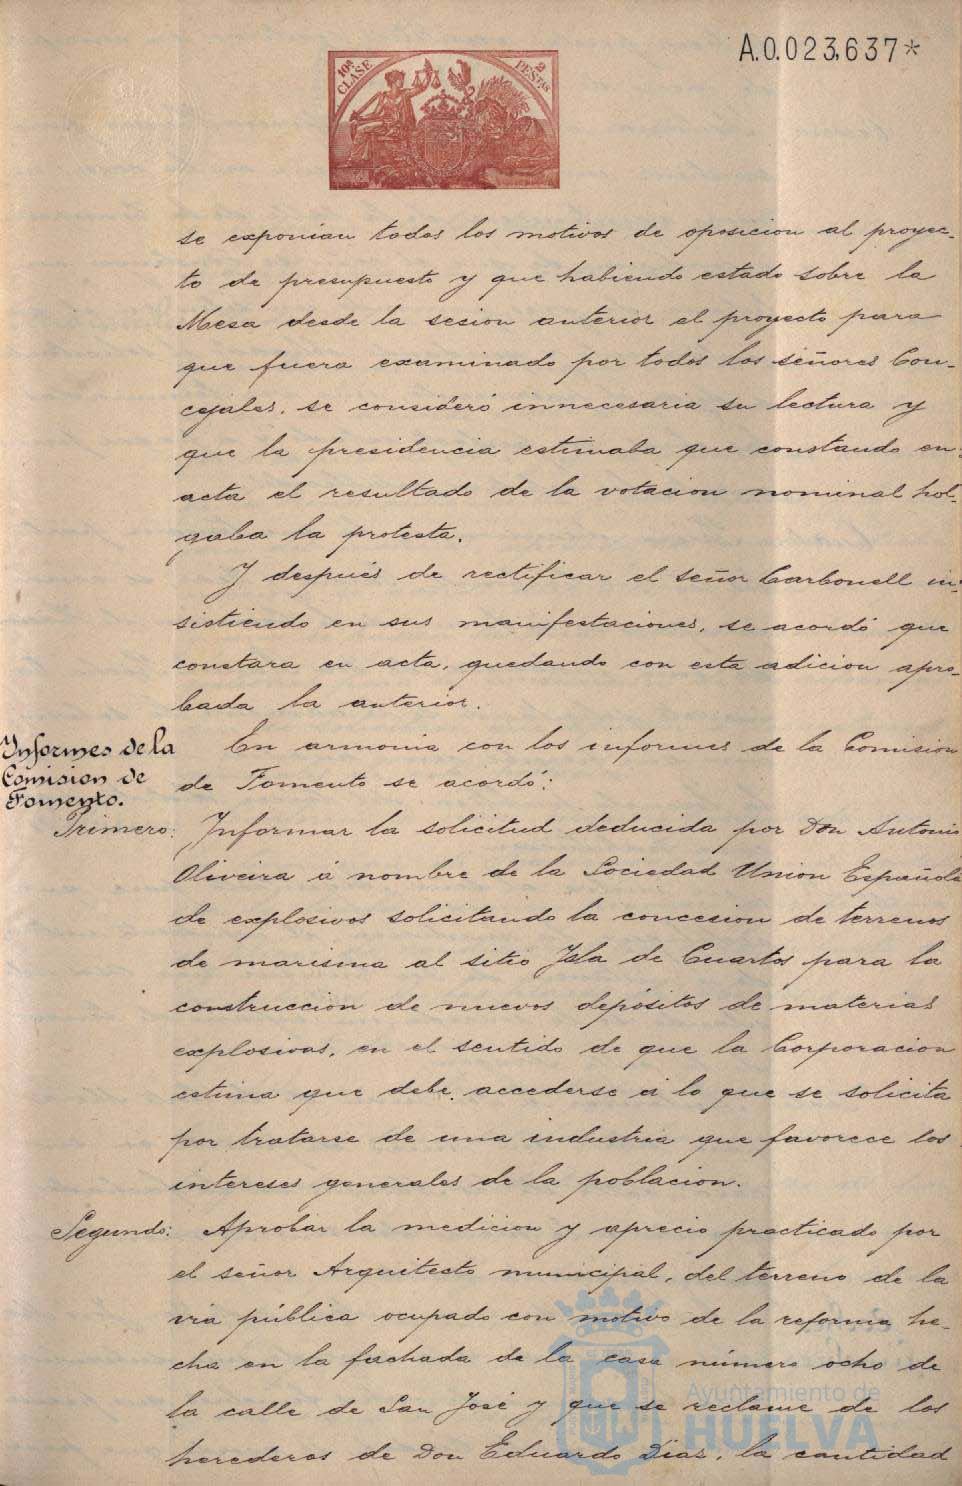 A.0.023,637*
10ª CLASE
2 PESTAS
se exponian todos los motivos de oposicion al proyec-
to de presupuesto y que habiendo estado sobre la
Mesa desde la sesion anterior el proyecto para
que fuera examinado por todos los señores Con-
cejales, se consideró innecesaria su lectura y
que la presidencia estimaba que constando en
acta el resultado de la votacion nominal hol-
gaba la protesta.
Y después de rectificar el señor Carbonell in-
sistiendo en sus manifestaciones, se acordó que
constara en acta, quedando con esta adicion apro-
bada la anterior.
Informes de la
Comision de
Fomento.
En armonia con los informes de la Comision
de Fomento se acordó:
Primero: Informar la solicitud deducida por Don Antonio
Oliveira á nombre de la Sociedad Union Española
de explosivos solicitando la concesion de terrenos
de marisma al sitio Isla de Cuartos para la
construccion de nuevos depósitos de materias
explosivas, en el sentido de que la Corporacion
estima que debe accederse á lo que se solicita
por tratarse de una industria que favorece los
intereses generales de la poblacion.
Segundo: Aprobar la medicion y aprecio practicado por
el señor Arquitecto municipal, del terreno de la
via pública ocupado con motivo de la reforma he-
cha en la fachada de la casa número ocho de
la calle de San José y que se reclame de los
herederos de Don Eduardo Diaz, la cantidad
Ayuntamiento de
HUELVA